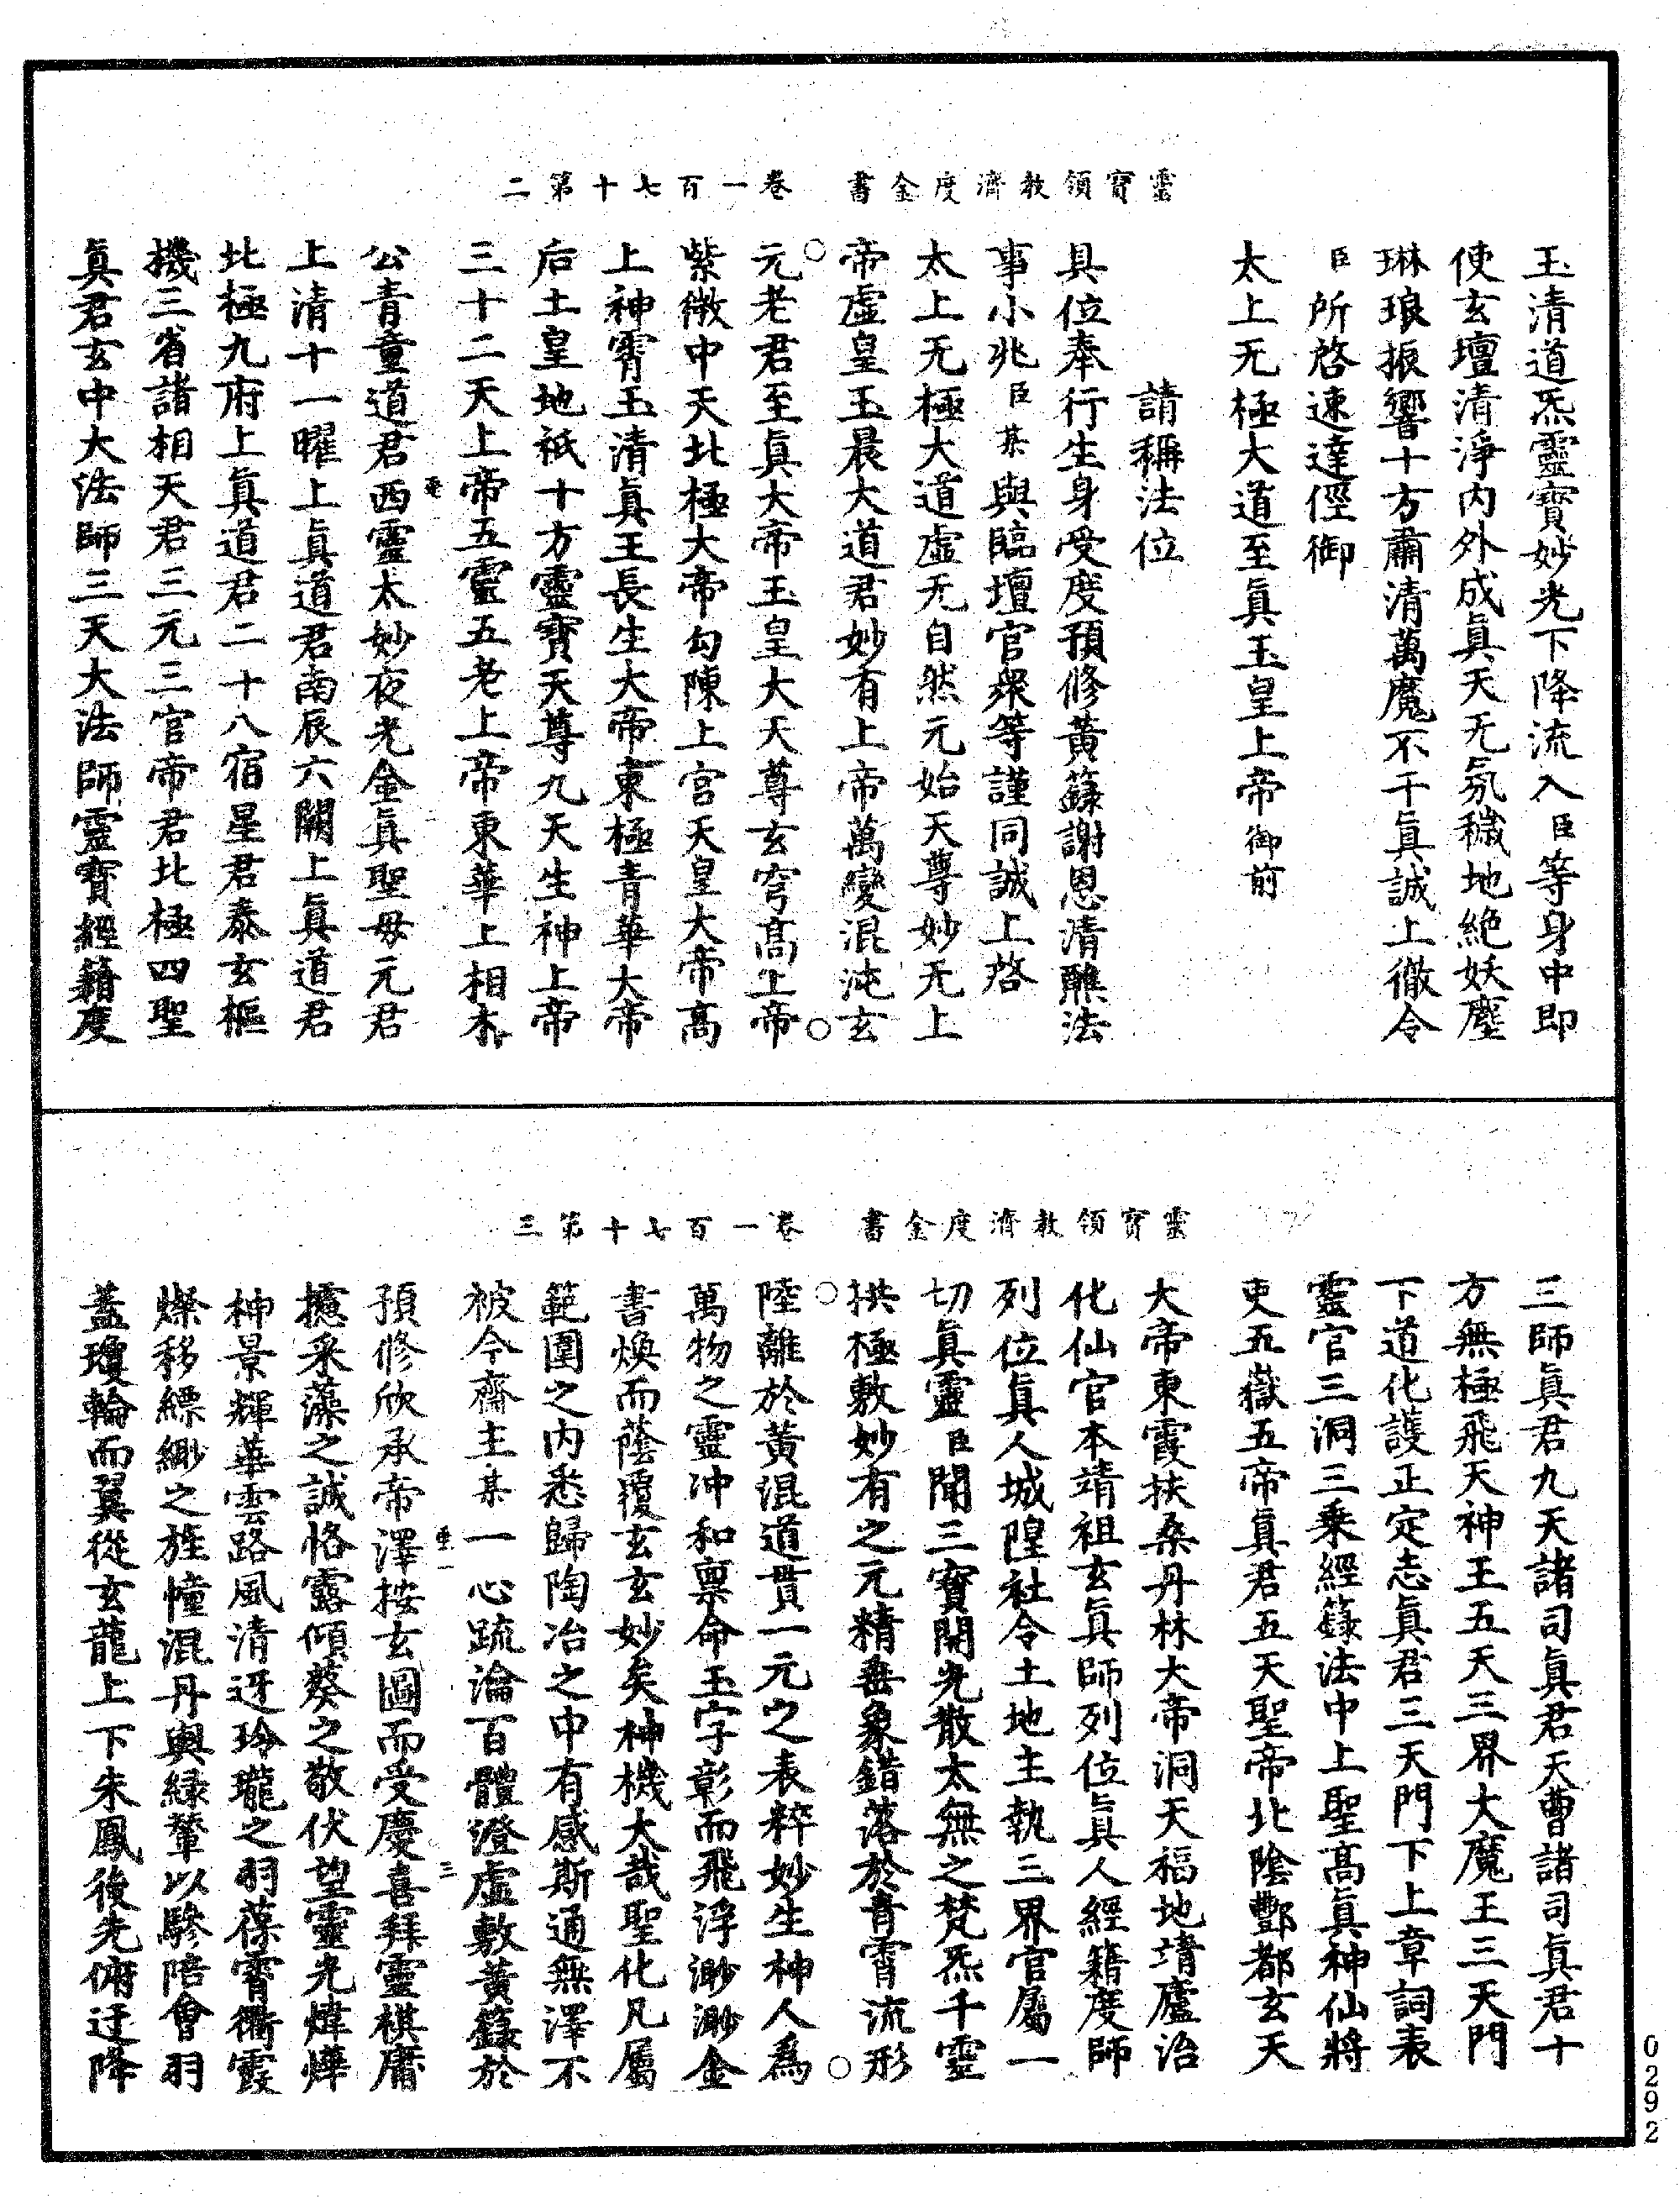 靈寶領教濟度金書　卷一百七十第二
玉清道炁靈寶妙光下降流入臣等身中即
使玄壇清淨內外成眞天无氛穢地絶妖塵
琳琅振響十方肅清萬魔不干眞誠上徹令
臣所啓速達徑御
太上无極大道至眞玉皇上帝御前
請稱法位
具位奉行生身受度預修黃籙謝恩清醮法
事小兆臣某與臨壇官衆等謹同誠上啓
太上无極大道虛无自然元始天尊妙无上
帝虛皇玉晨大道君妙有上帝萬變混沌玄
元老君至眞大帝玉皇大天尊玄穹高上帝
紫微中天北極大帝勾陳上宮天皇大帝高
上神霄玉清眞王長生大帝東極青華大帝
后土皇地祇十方靈寶天尊九天生神上帝
三十二天上帝五靈五老上帝東華上相木
公青童道君西靈太妙夜光金眞聖母元君
上清十一曜上眞道君南辰六闕上眞道君
北極九府上眞道君二十八宿星君泰玄樞
機三省諸相天君三元三官帝君北極四聖
眞君玄中大法師三天大法師靈寶經籍度
靈寶領教濟度金書　卷一百七十第三
三師眞君九天諸司眞君天曹諸司眞君十
方無極飛天神王五天三界大魔王三天門
下道化護正定志眞君三天門下上章詞表
靈官三洞三乘經籙法中上聖高眞神仙將
吏五嶽五帝眞君五天聖帝北陰酆都玄天
大帝東霞扶桑丹林大帝洞天福地靖廬治
化仙官本靖祖玄眞師列位眞人經籍度師
列位眞人城隍社令土地主執三界官屬一
切眞靈臣聞三寶開光散太無之梵炁千靈
拱極敷妙有之元精垂象錯落於青霄流形
陸離於黃混道貫一元之表粹妙生神人爲
萬物之靈冲和禀命玉字彰而飛浮渺渺金
書煥而蔭覆玄玄妙矣神機大哉聖化凡屬
範圍之內悉歸陶冶之中有感斯通無澤不
被今齋主某一心疏淪百體澄虛敷黃籙於
預修欣承帝澤按玄圖而受慶喜拜靈棋庸
攄采藻之誠恪露傾葵之敬伏望靈光煒燁
神景輝華雲路風清迓玲瓏之羽葆霄衢霞
燦移縹緲之旌幢混丹輿緑輦以驂陪會羽
蓋瓊輪而翼從玄龍上下朱鳳後先俯迂降
0292